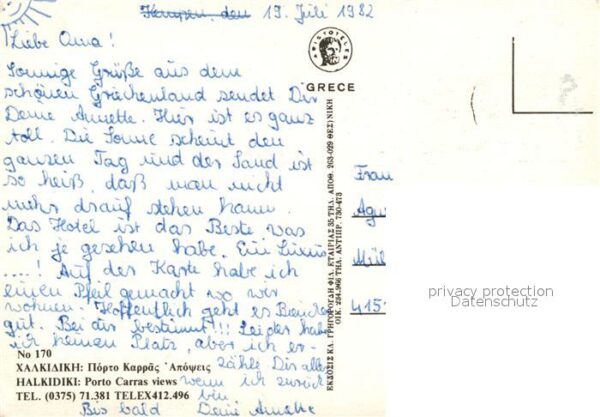 Kempen, den 19. Juli 1982
Liebe Oma!
Sonnige Grüße aus dem
schönen Griechenland sendet Dir
Deine Annette. Hier ist es ganz
toll. Die Sonne scheint den
ganzen Tag und der Sand ist
so heiß, daß man nicht
mehr drauf stehen kann.
Das Hotel ist das Beste was
ich je gesehen habe. Ein Luxus
....! Auf der Karte habe ich
einen Pfeil gemacht wo wir
wohnen. Hoffentlich geht es
gut. Bei dir bestimmt!!! Leider habe
ich keinen Platz, aber ich er-
zähle Dir alles
wenn ich zurück
bin.
Bis bald Deine Annette
No 170
ΧΑΛΚΙΔΙΚΗ: Πόρτο Καρρᾶς Ἀπόψεις
HALKIDIKI: Porto Carras views
TEL. (0375) 71.381 TELEX412.496
ΑΡΙΣΤΟΤΕΛΗΣ
GRECE
ΕΚΔΟΣΙΣ ΚΛ. ΓΡΗΓΟΡΟΥΔΗ ΦΙΛ. ΕΤΑΙΡΙΑΣ 35 ΤΗΛ. ΑΠΟΘ. 263-029 ΘΕΣ)ΝΙΚΗ
ΟΙΚ. 234.966 ΤΗΛ. ΑΝΤΙΠΡ. 730-473
Frau
Agn
Mül
415
privacy protection
Datenschutz